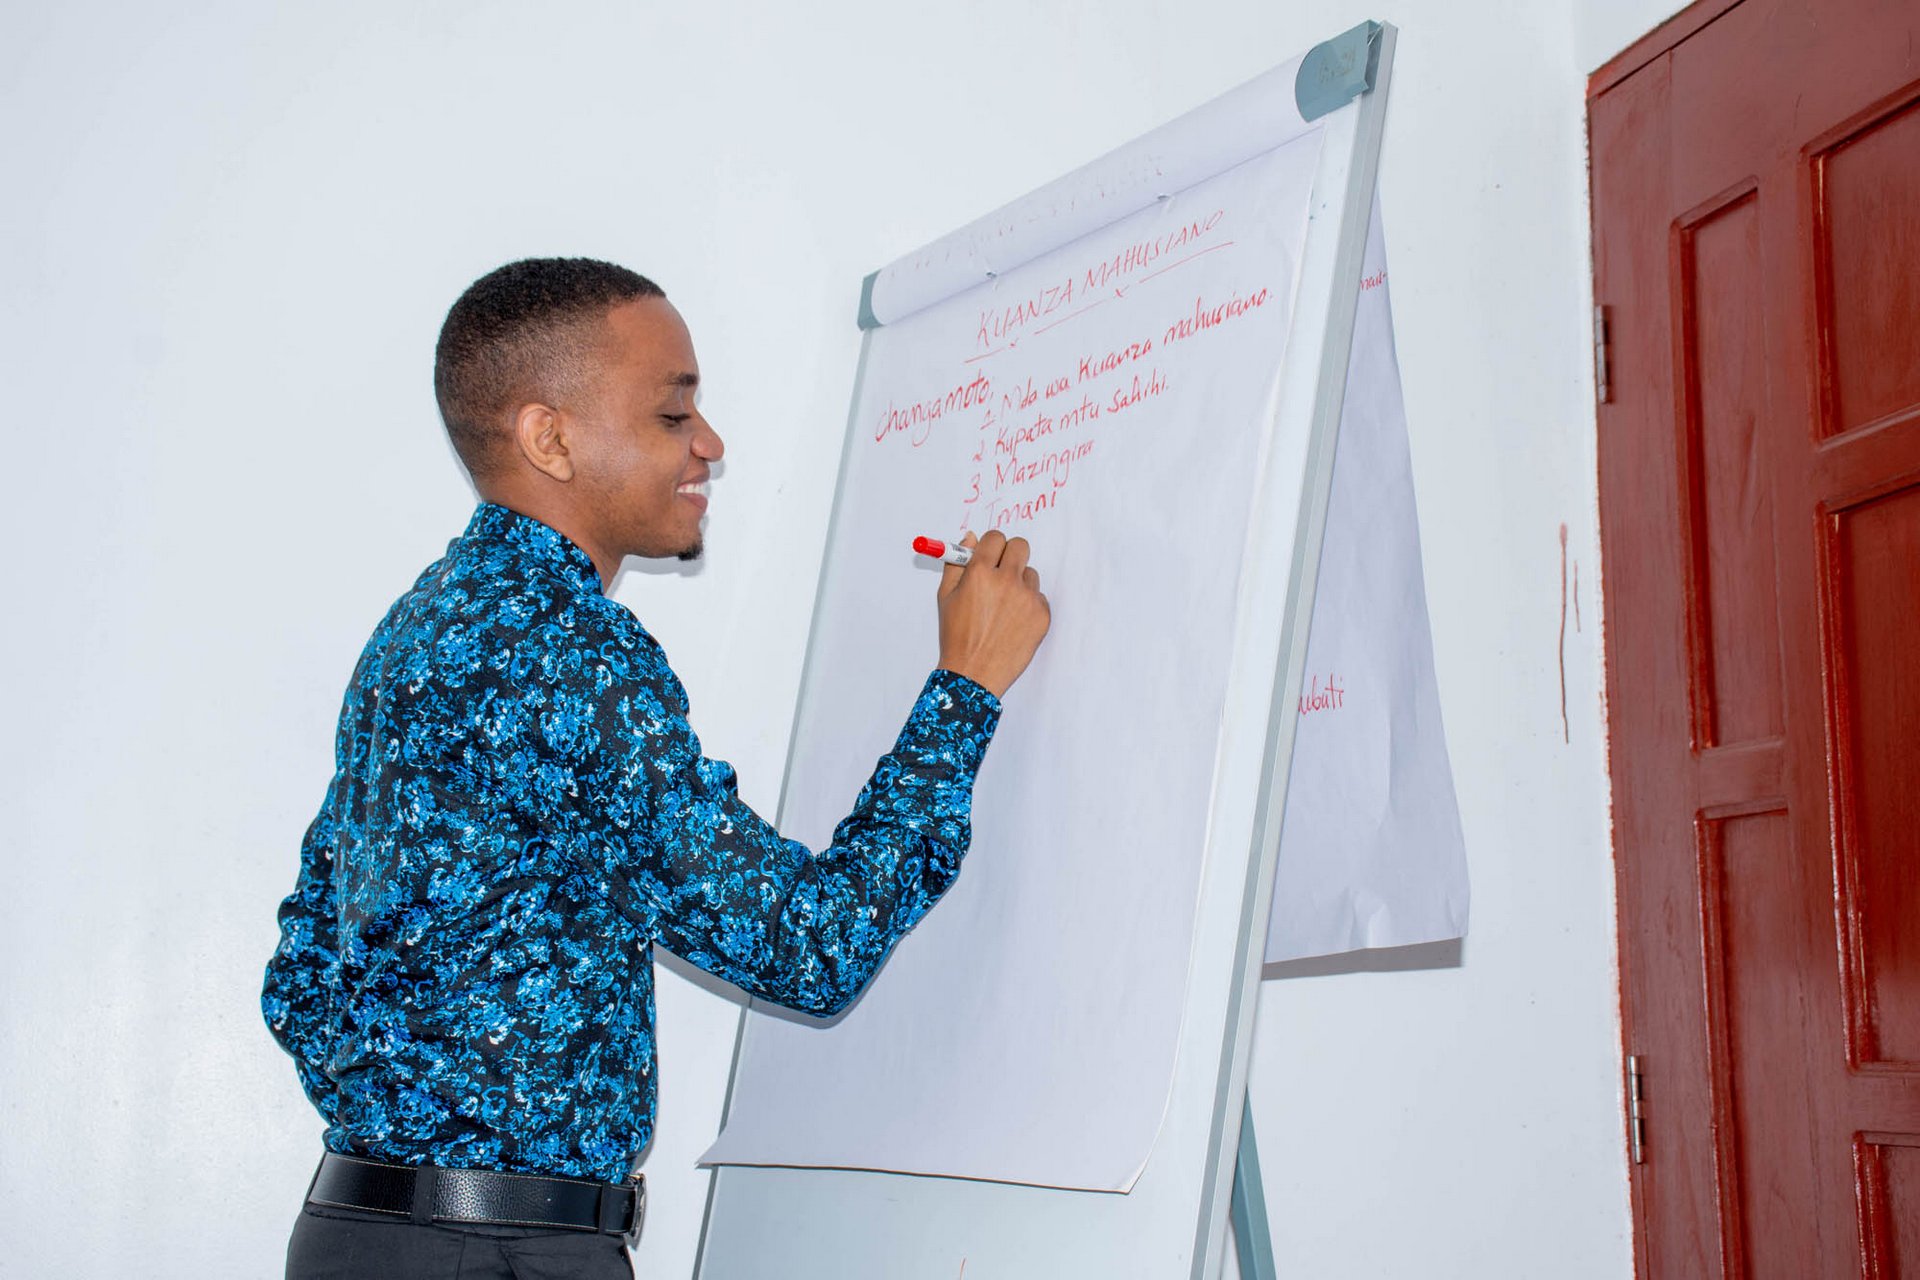 KUANZA MAHUSIANO
changamoto; 1. Mda wa Kuanza mahusiano.
2 Kupata mtu sahihi.
3. Mazingira
4 Imani
ubuti